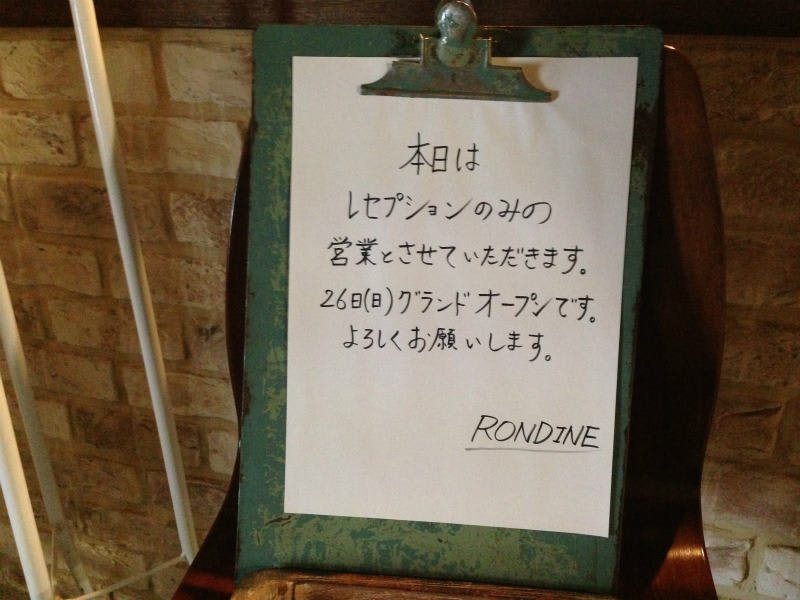 本日は
レセプションのみの
営業とさせていただきます。
26日(日)グランドオープンです。
よろしくお願いします。
RONDINE